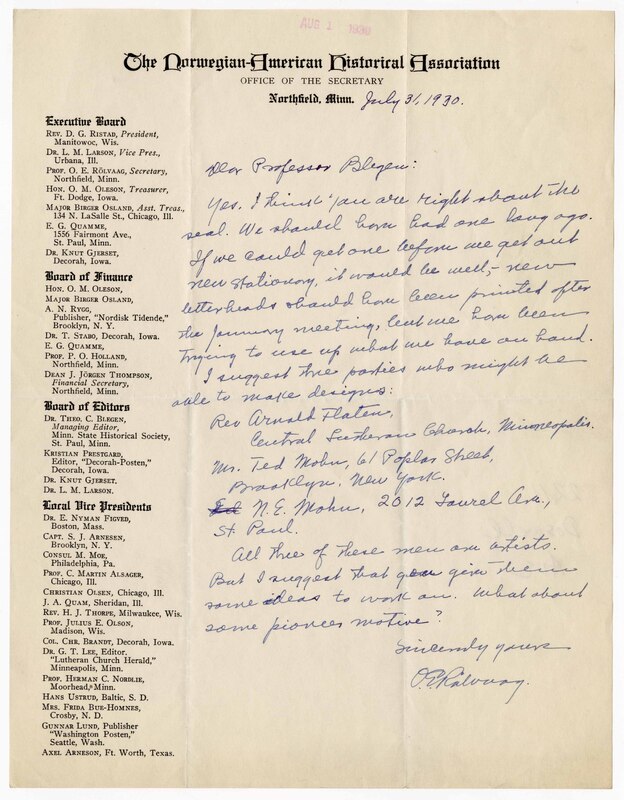 AUG 1 1930
The Norwegian-American Historical Association
OFFICE OF THE SECRETARY
Northfield, Minn. July 31, 1930.
Executive Board
REV. D. G. RISTAD, President,
Manitowoc, Wis.
DR. L. M. LARSON, Vice Pres.,
Urbana, Ill.
PROF. O. E. RÖLVAAG, Secretary,
Northfield, Minn.
HON. O. M. OLESON, Treasurer,
Ft. Dodge, Iowa.
MAJOR BIRGER OSLAND, Asst. Treas.,
134 N. LaSalle St., Chicago, Ill.
E. G. QUAMME,
1556 Fairmont Ave.,
St. Paul, Minn.
DR. KNUT GJERSET,
Decorah, Iowa.
Board of Finance
HON. O. M. OLESON,
MAJOR BIRGER OSLAND,
A. N. RYGG,
Publisher, "Nordisk Tidende,"
Brooklyn, N. Y.
DR. T. STABO, Decorah, Iowa.
E. G. QUAMME,
PROF. P. O. HOLLAND,
Northfield, Minn.
DEAN J. JÖRGEN THOMPSON,
Financial Secretary,
Northfield, Minn.
Board of Editors
DR. THEO. C. BLEGEN,
Managing Editor,
Minn. State Historical Society,
St. Paul, Minn.
KRISTIAN PRESTGARD,
Editor, "Decorah-Posten,"
Decorah, Iowa.
DR. KNUT GJERSET.
DR. L. M. LARSON.
Local Vice Presidents
DR. E. NYMAN FIGVED,
Boston, Mass.
CAPT. S. J. ARNESEN,
Brooklyn, N. Y.
CONSUL M. MOE,
Philadelphia, Pa.
PROF. C. MARTIN ALSAGER,
Chicago, Ill.
CHRISTIAN OLSEN, Chicago, Ill.
J. A. QUAM, Sheridan, Ill.
REV. H. J. THORPE, Milwaukee, Wis.
PROF. JULIUS E. OLSON,
Madison, Wis.
COL. CHR. BRANDT, Decorah, Iowa.
DR. G. T. LEE, Editor,
"Lutheran Church Herald,"
Minneapolis, Minn.
PROF. HERMAN C. NORDLIE,
Moorhead, Minn.
HANS USTRUD, Baltic, S. D.
MRS. FRIDA BUE-HOMNES,
Crosby, N. D.
GUNNAR LUND, Publisher
"Washington Posten,"
Seattle, Wash.
AXEL ARNESON, Ft. Worth, Texas.
Dear Professor Blegen:
Yes, I think you are right about the
seal. We should have had one long ago.
If we could get one before we get out
new stationary, it would be well,- new
letterheads should have been printed after
the January meeting, but we have been
trying to use up what we have on hand.
I suggest three parties who might be
able to make designs:
Rev Arnold Flaten,
Central Lutheran Church, Minneapolis.
Mr. Ted Mohn, 61 Poplar Street,
Brooklyn, New York.
N. E. Mohn, 2012 Laurel Ave.,
St. Paul.
All three of these men are artists.
But I suggest that you give them
some ideas to work on. What about
some pioneer motive?
Sincerely yours
O.E. Rölvaag.